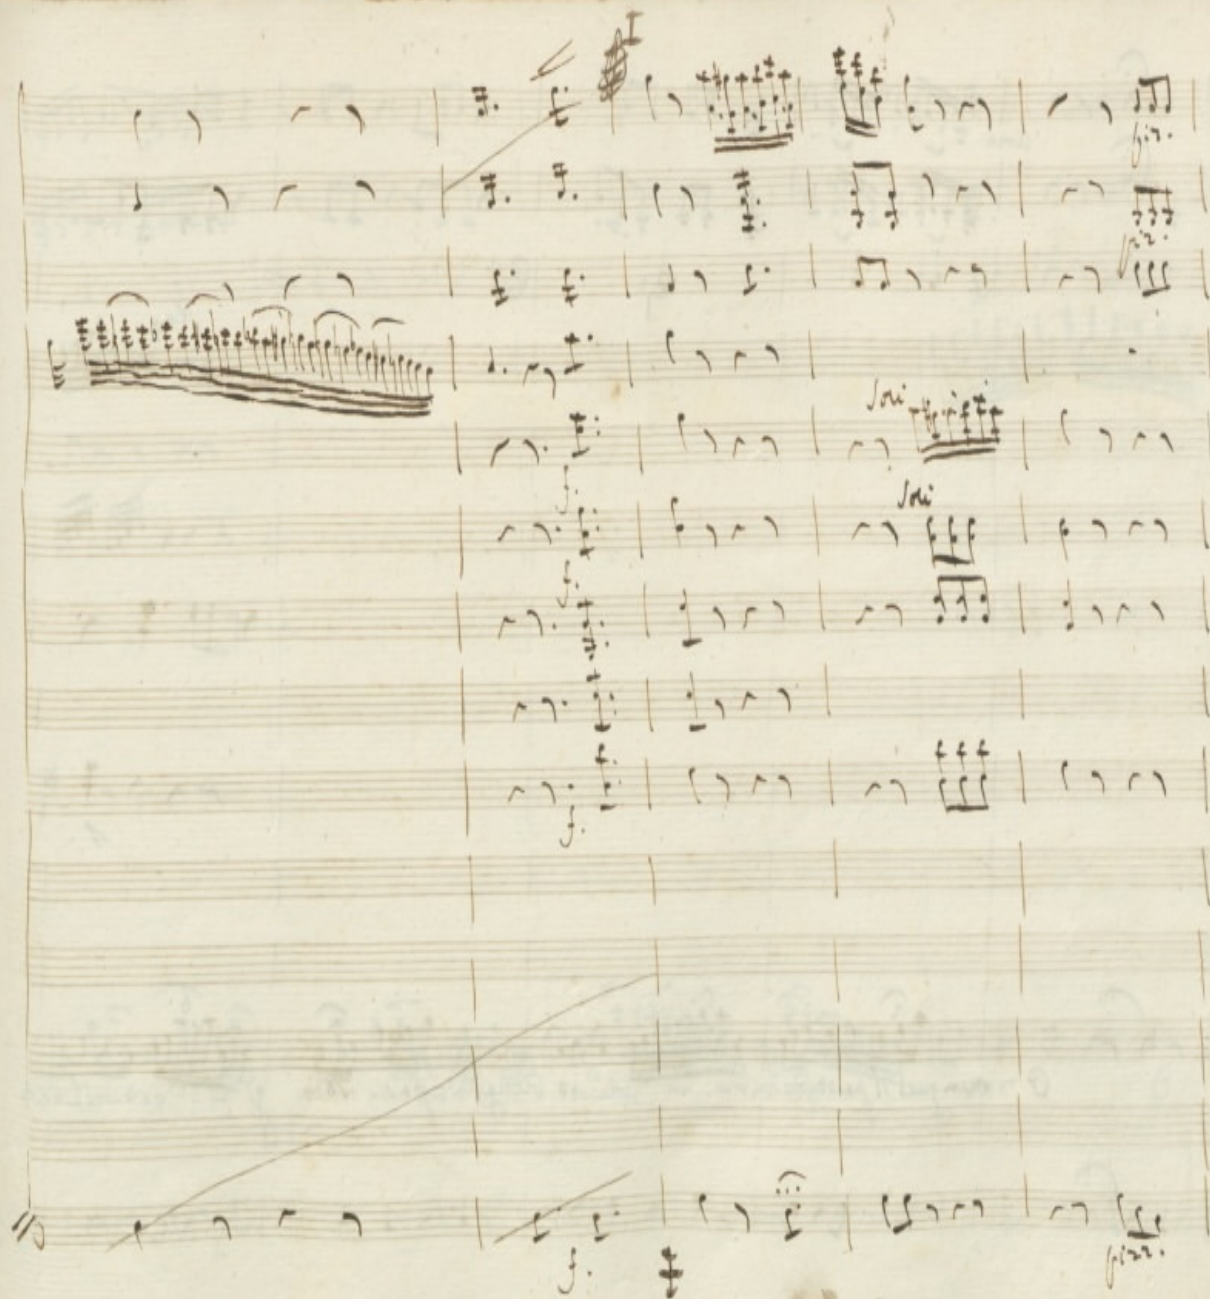 I
piz.
piz.
Soli
f.
Soli
f.
f.
f.
pizz.